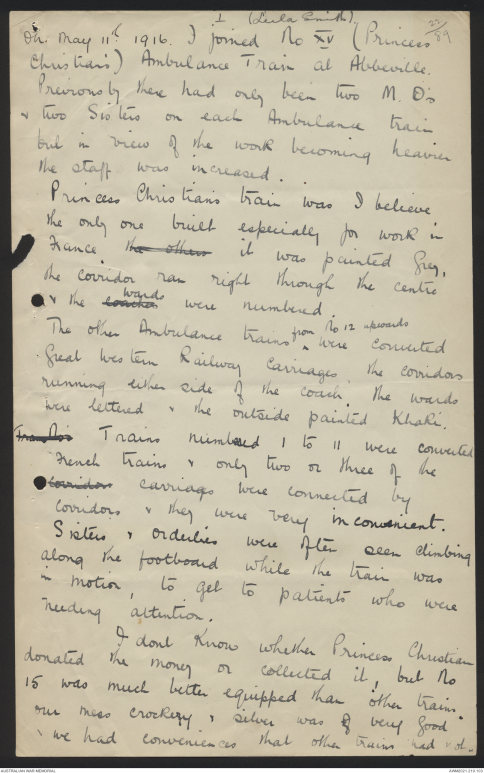 1 (Leila Smith). 23/89
On May 11th 1916. I joined No XV (Princess
Christian's) Ambulance Train at Abbeville.
Previously there had only been two M.O's
& two Sisters on each Ambulance train
but in view of the work becoming heavier
the staff was increased.
Princess Christians train was I believe
the only one built especially for work in
France. the others it was painted Grey,
the corridor ran right through the centre
& the coaches wards were numbered.
The other Ambulance trains from No 12 upwards were converted
Great Western Railway Carriages the corridors
running either side of the coach. the wards
were lettered & the outside painted Khaki.
Trains Trains numbered 1 to 11 were converted
French trains & only two or three of the
corridors carriages were connected by
corridors & they were very inconvenient.
Sisters & orderlies were often seen climbing
along the footboard while the train was
in motion, to get to patients who were
needing attention.
I dont know whether Princess Christian
donated the money or collected it, but No
15 was much better equipped than other trains.
our mess crockery & silver was very good
& we had conveniences that other trains had not.
AUSTRALIAN WAR MEMORIAL